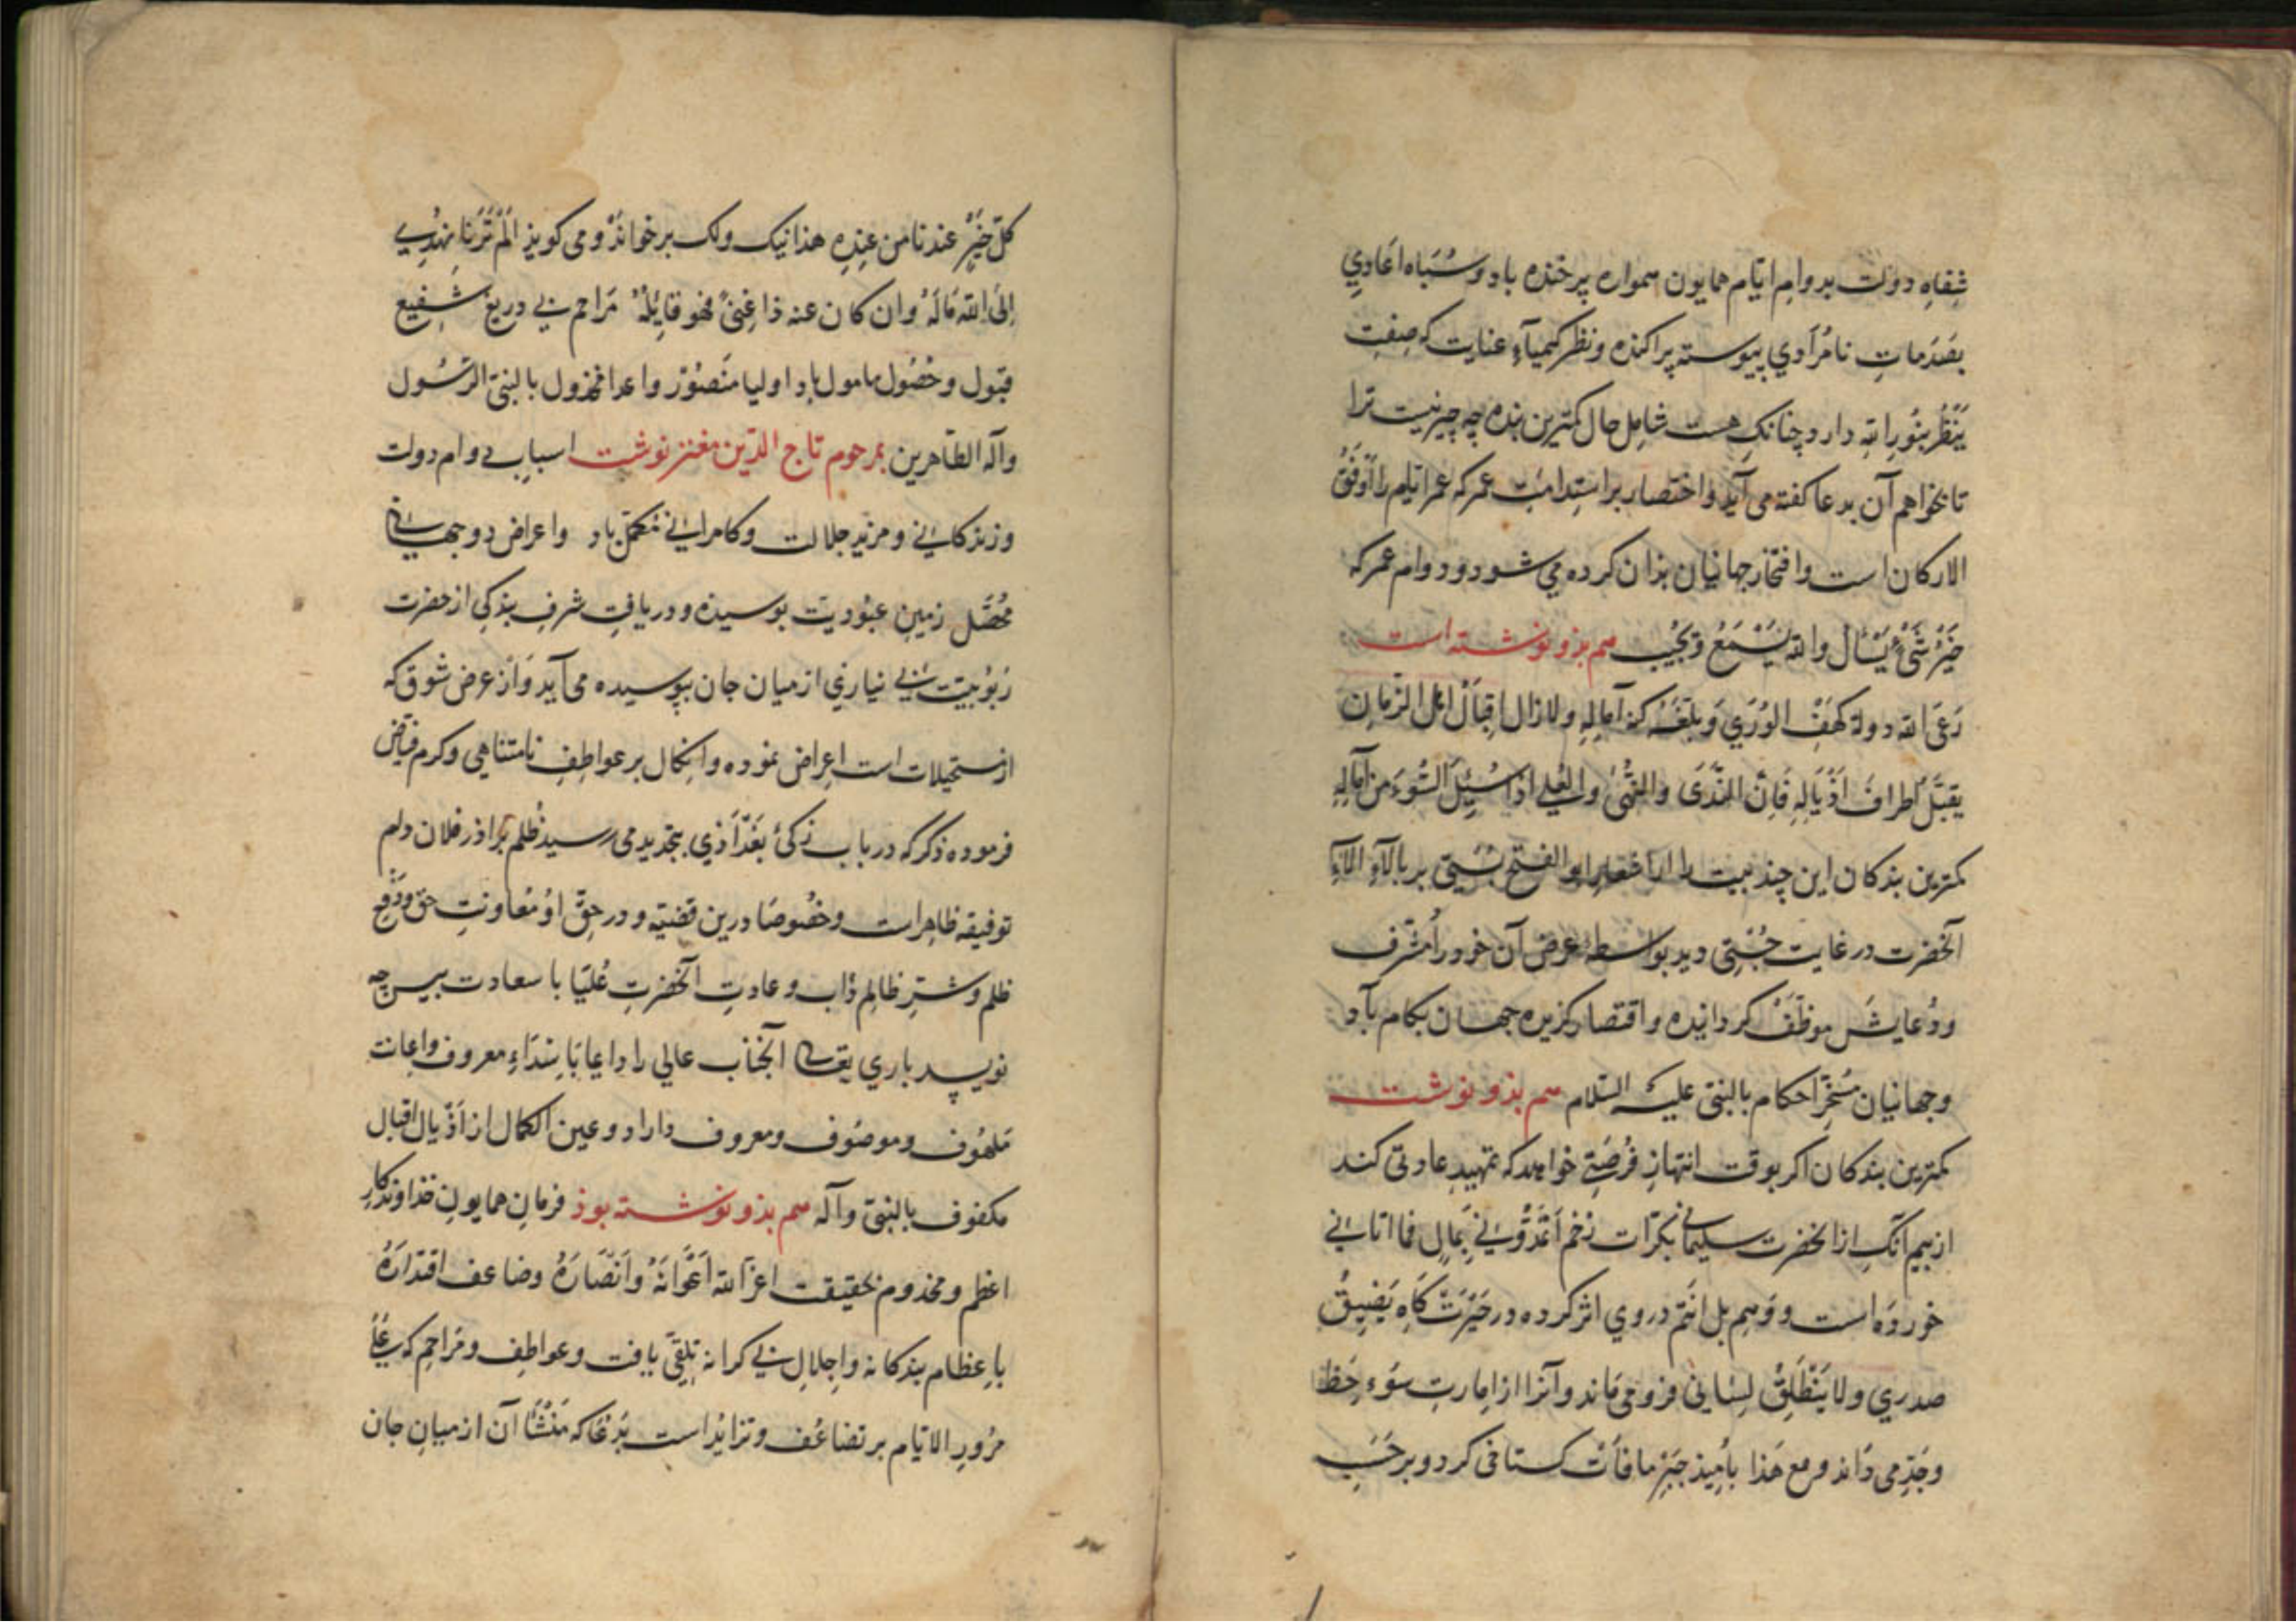 شِفاهِ دولت بدوامِ ایّام همایون همواره پرخنده باد وشباه اعادِي
بصَدَماتِ نامُرادي پیوسته پراکنده ونظر کیمیآءِ عنایت که صِفتِ
یَنْظُرُ بنُورِ اللّه دارد چنانکِ هست شامِل حال کمترین بنده چه چیز نیست ترا
تا بخواهم آن بدعا کفته می آید واختصار بر استِدامتِ عمر که عمر ایّام را اَوْفَقُ
الارکان است وافتخار جهانیان بذان کرده می شود ودوام عمر که
خَیْرُ شَیْءٍ یُسْأل واللّه یَسْمَعُ ویُجیب هم بذو نوشته است
رَعَی اللّه دولة کهفِ الوَرَي وَبلّغَهُ کنهَ آمالِهِ ولا زال اِقبالُ اهل الزّمانِ
یقبّل اطرافَ اَذْیَالِهِ فَاِنّ النَّدَی والنُّهَی والعُلی اذا سُئِلَ السُّوءَ مِن آلِهِ
کمترین بندکان این چند بیت را از اشعار ابو الفتح بُسْتِی بر بالآءِ الآءِ
آنحضرت در غایت چُستی دید بواسطه عرض آن خود را مُشرّف
ودُعایش موظّفْ کردانیده واقتصار کزیده جهان بکام باد
وجهانیان مُسَخّرِ احکام بالنبیّ علیه السّلام هم بذو نوشت
کمترین بندکان اکر بوقت انتهازِ فُرصَتِی خواهد که تمهیدِ عادتی کند
از بیم آنکِ از آنحضرت سلیمانی بکرّات زخم اَتُمِدُّونَنِی بِمَالٍ فما اتانی
خورده است ووهم بل انتم در وي اثر کرده در حَیْرَتْ کَاهِ یَضِیقُ
صدري ولا یَنْطَلِقُ لِسَانِی فرو می ماند وآنرا از اماراتِ سُوءِ حَظّ
وجَدّ می دَاند ومع هَذا باُمیذ جَبْرِ ما فات کستاخی کرد وبر حَسَبِ
کلّ خَیْرٍ عندنا من عِندِهِ هذا نیک ولک برخوانَدْ ومی کویذ اَلَمْ تَرَنا نُهْدِي
اِلَی اللّه مَا لَهُ وان کان عنه ذا غِنیً فهو قابِلُهُ مَراحم بی دریغ شفیع
قبول وحُصُول مامول باد اولیا منصُوْر واعدا مخذول بالنبیّ الرّسُول
وآله الطّاهرین بمرحوم تاج الدّین مغتز نوشت اسبابِ دوام دولت
وزندکانی ومزید جلالت وکامرانی مُکمّل باد واعراض دوجهانی
مُحصّل زمینِ عبُودیّت بوسیده ودریافتِ شرفِ بندکی از حضرت
رَبُوبیّت بی نیازي از میان جان بپوسیده می آید وَاَز عرض شوق که
از مستحیلات است اِعراض نموده واتکال بر عواطِفِ نامتناهی وکرم فیّاض
فرموده ذکر که در باب زکی بَغْدَاذي بتجدید می رسید ظلم براذر فلان دام
توفیقه ظاهر است وخُصُوصًا درین قضیّه ودر حقّ او مُعاونتِ حق ودَفع
ظلم وشرّ ظالم دَاب وعادتِ آنحضرتِ عُلیَا با سعادت ببین چه
نویسد باري تعالی آنجناب عالی را داعیًا بَا سْدَاءِ معروف واعانت
ملهُوف وموصُوف ومعروف داراد وعین الکمال از اَذْیال اقبال
مکفوف بالنبیّ وآله هم بذو نوشته بوذ فرمانِ همایونِ خذاوندکارِ
اعظم ومخذوم بحقیقت اعزّ اللّه اَعْوَانَهُ وَاَنْصَارَهُ وضاعف اقتدَارَهُ
باِعظام بندکانه واِجلالِ بی کرانه تلقّی یافت وعواطِف ومَراحِم که عَلَی
مُرُورِ الایّام بر تضاعُف وتزایُد است بدُعَا که مَنْشَأ آن از میانِ جان